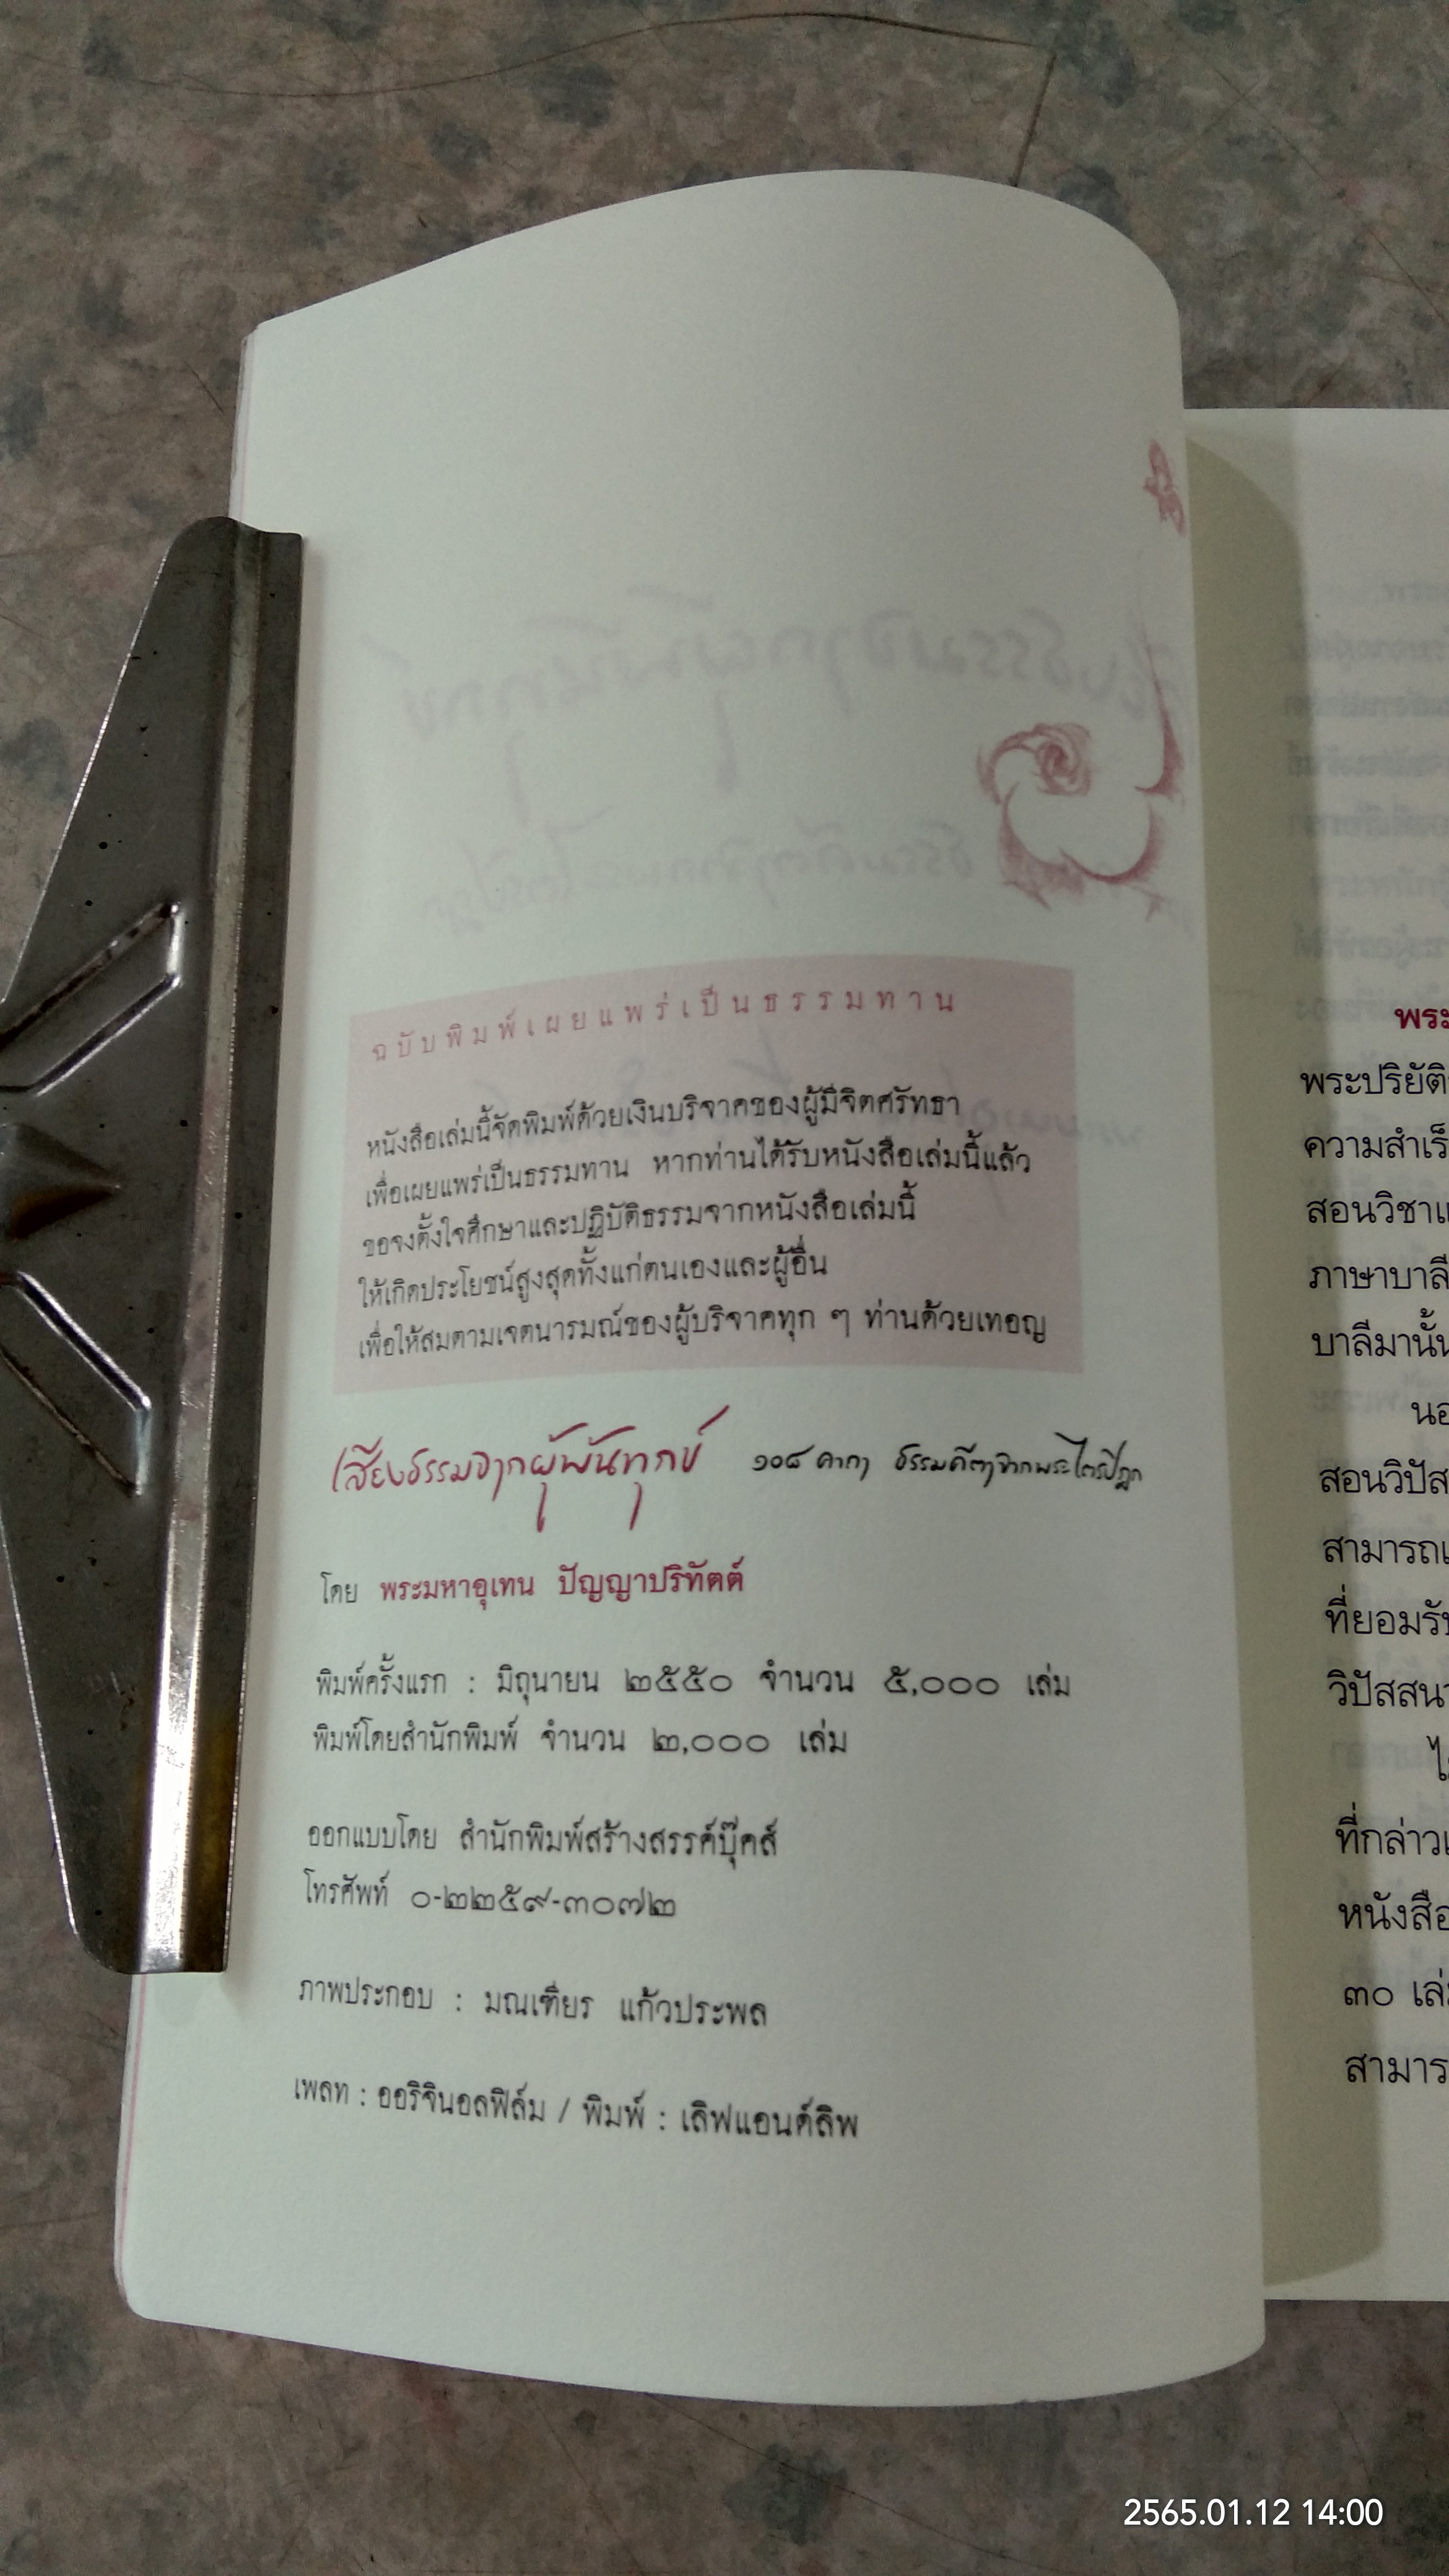 ฉบับพิมพ์เผยแพร่เป็นธรรมทาน
หนังสือเล่มนี้จัดพิมพ์ด้วยเงินบริจาคของผู้มีจิตศรัทธา
เพื่อเผยแพร่เป็นธรรมทาน หากท่านได้รับหนังสือเล่มนี้แล้ว
ขอจงตั้งใจศึกษาและปฏิบัติธรรมจากหนังสือเล่มนี้
ให้เกิดประโยชน์สูงสุดทั้งแก่ตนเองและผู้อื่น
เพื่อให้สมตามเจตนารมณ์ของผู้บริจาคทุก ๆ ท่านด้วยเทอญ
เสียงธรรมจากผู้พ้นทุกข์ ๑๐๘ คาถา ธรรมคีตาจากพระไตรปิฎก
โดย พระมหาอุเทน ปัญญาปริทัตต์
พิมพ์ครั้งแรก : มิถุนายน ๒๕๕๐ จำนวน ๕,๐๐๐ เล่ม
พิมพ์โดยสำนักพิมพ์ จำนวน ๒,๐๐๐ เล่ม
ออกแบบโดย สำนักพิมพ์สร้างสรรค์บุ๊คส์
โทรศัพท์ ๐-๒๒๕๙-๓๐๗๒
ภาพประกอบ : มณเฑียร แก้วประพล
เพลท : ออริจินอลฟิล์ม / พิมพ์ : เลิฟแอนด์ลิพ
พระ
พระปริยัติ
ความสำเร็
สอนวิชาแ
ภาษาบาลี
บาลีมานั้น
นอ
สอนวิปัส
สามารถแ
ที่ยอมรับ
วิปัสสนา
ที่กล่าวแ
หนังสือ
๓๐ เล่ม
สามาร
2565.01.12 14:00